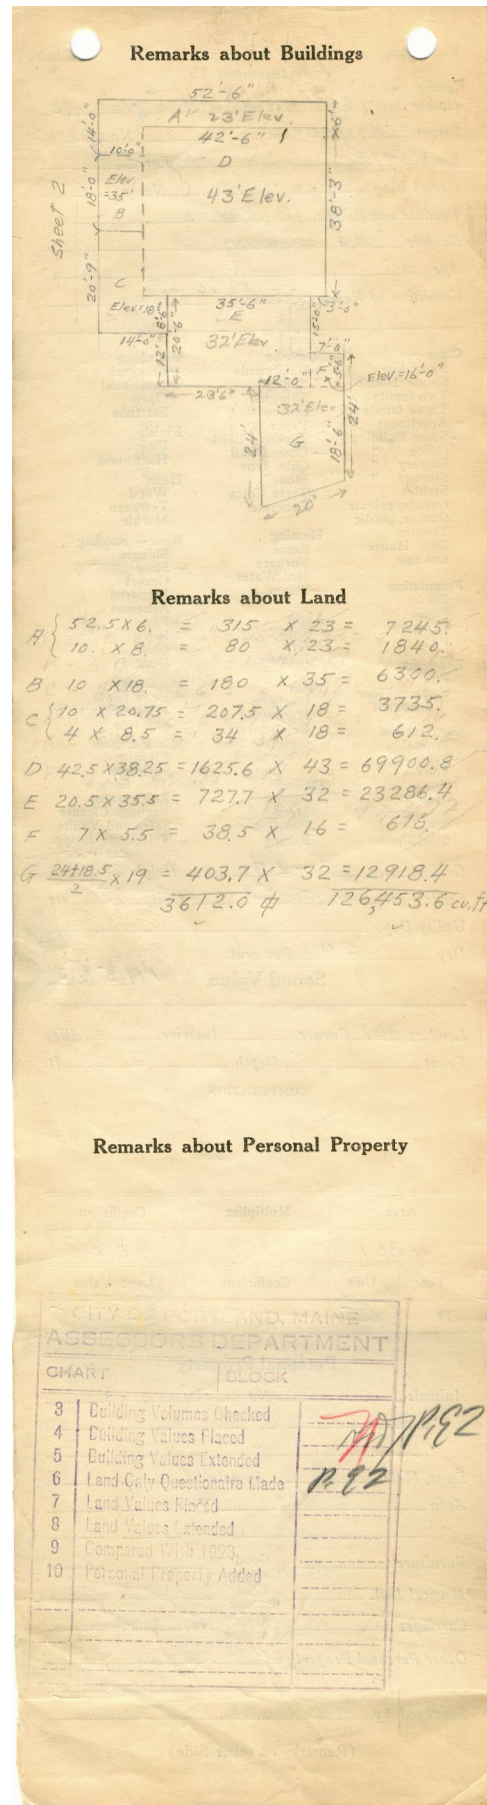 Remarks about Buildings
52'-6"
A 23' Elev.
42'-6"
14'-0"
x6'
10'-0"
D
Elev.
=35'
B
43' Elev.
18'-0"
38'-3"
Sheet 2
20'-9"
C
Elev=18'
8'-6"
35'-6"
3'-0"
E
32' Elev
20'-6"
15'-0"
14'-0"
12'
7'-0"
F
5'-6"
Elev.=16'-0"
12'-0"
23'6"
32' Elev
24'
G
18'-6"
24'
20'
Remarks about Land
A 52.5 x 6. = 315 x 23 = 7245.
10. x 8 = 80 x 23 = 1840.
B 10 x 18. = 180 x 35 = 6300.
C 10 x 20.75 = 207.5 x 18 = 3735.
4 x 8.5 = 34 x 18 = 612.
D 42.5 x 38.25 = 1625.6 x 43 = 69900.8
E 20.5 x 35.5 = 727.7 x 32 = 23286.4
F 7 x 5.5 = 38.5 x 16 = 616.
G 24+18.5/2 x 19 = 403.7 x 32 = 12918.4
3612.0 ⌷ 126,453.6 cu.ft
Remarks about Personal Property
CITY OF PORTLAND, MAINE
ASSESSORS DEPARTMENT
CHART BLOCK
3 Building Volumes Checked
4 Building Values Placed
5 Building Values Extended
6 Land Only Questionaire Made
7 Land Values Placed
8 Land Values Extended
9 Compared With 1923
10 Personal Property Added